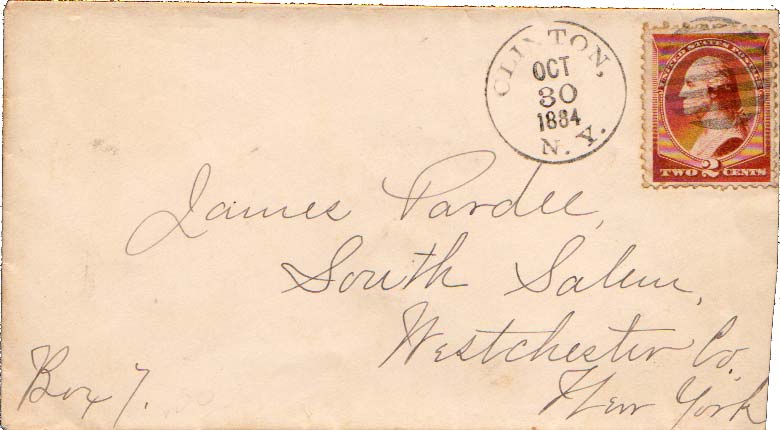 CLINTON,
OCT
30
1884
N.Y.
UNITED STATES POSTAGE
TWO 2 CENTS
James Pardee,
South Salem,
Westchester Co,
New York
Box 7.